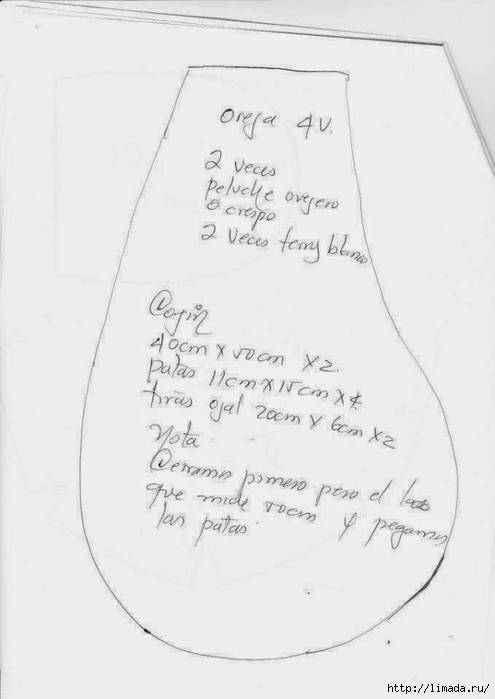 oreja 4V.
2 veces
peluche ovejero
o crespo
2 veces terry blanco
Cojin
40cm x 50cm x2
patas 11cm x 15cm x 4
tiras ojal 20cm x 6cm x2
Nota
Cerramos primero pero el lado
que mide 50cm y pegamos
las patas
http://limada.ru/